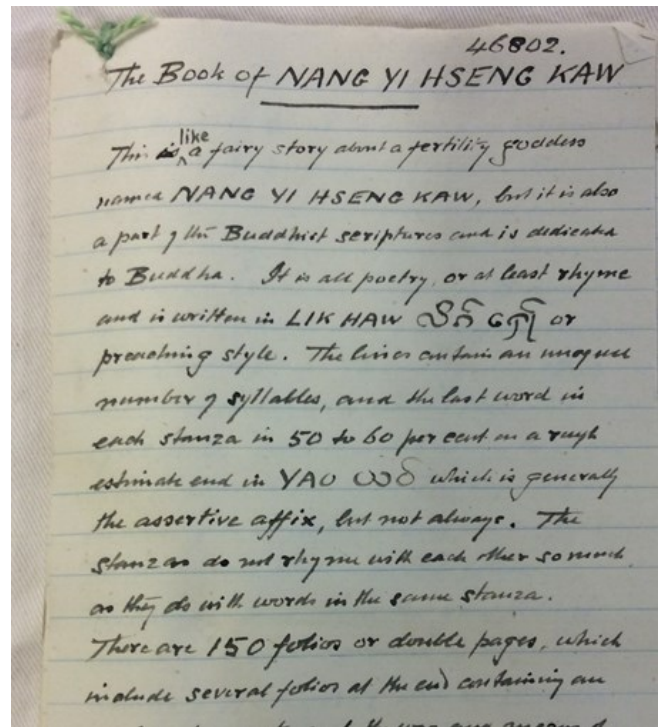 46802.
The Book of NANG YI HSENG KAW
like
This is a fairy story about a fertility goddess
named NANG YI HSENG KAW, but it is also
a part of the Buddhist scriptures and is dedicated
to Buddha. It is all poetry, or at least rhyme
and is written in LIK HAW or
preaching style. The lines contain an unequal
number of syllables, and the last word in
each stanza in 50 to 60 per cent on a rough
estimate end in YAO which is generally
the assertive affix, but not always. The
stanzas do not rhyme with each other so much
as they do with words in the same stanza.
There are 150 folios or double pages, which
include several folios at the end containing an